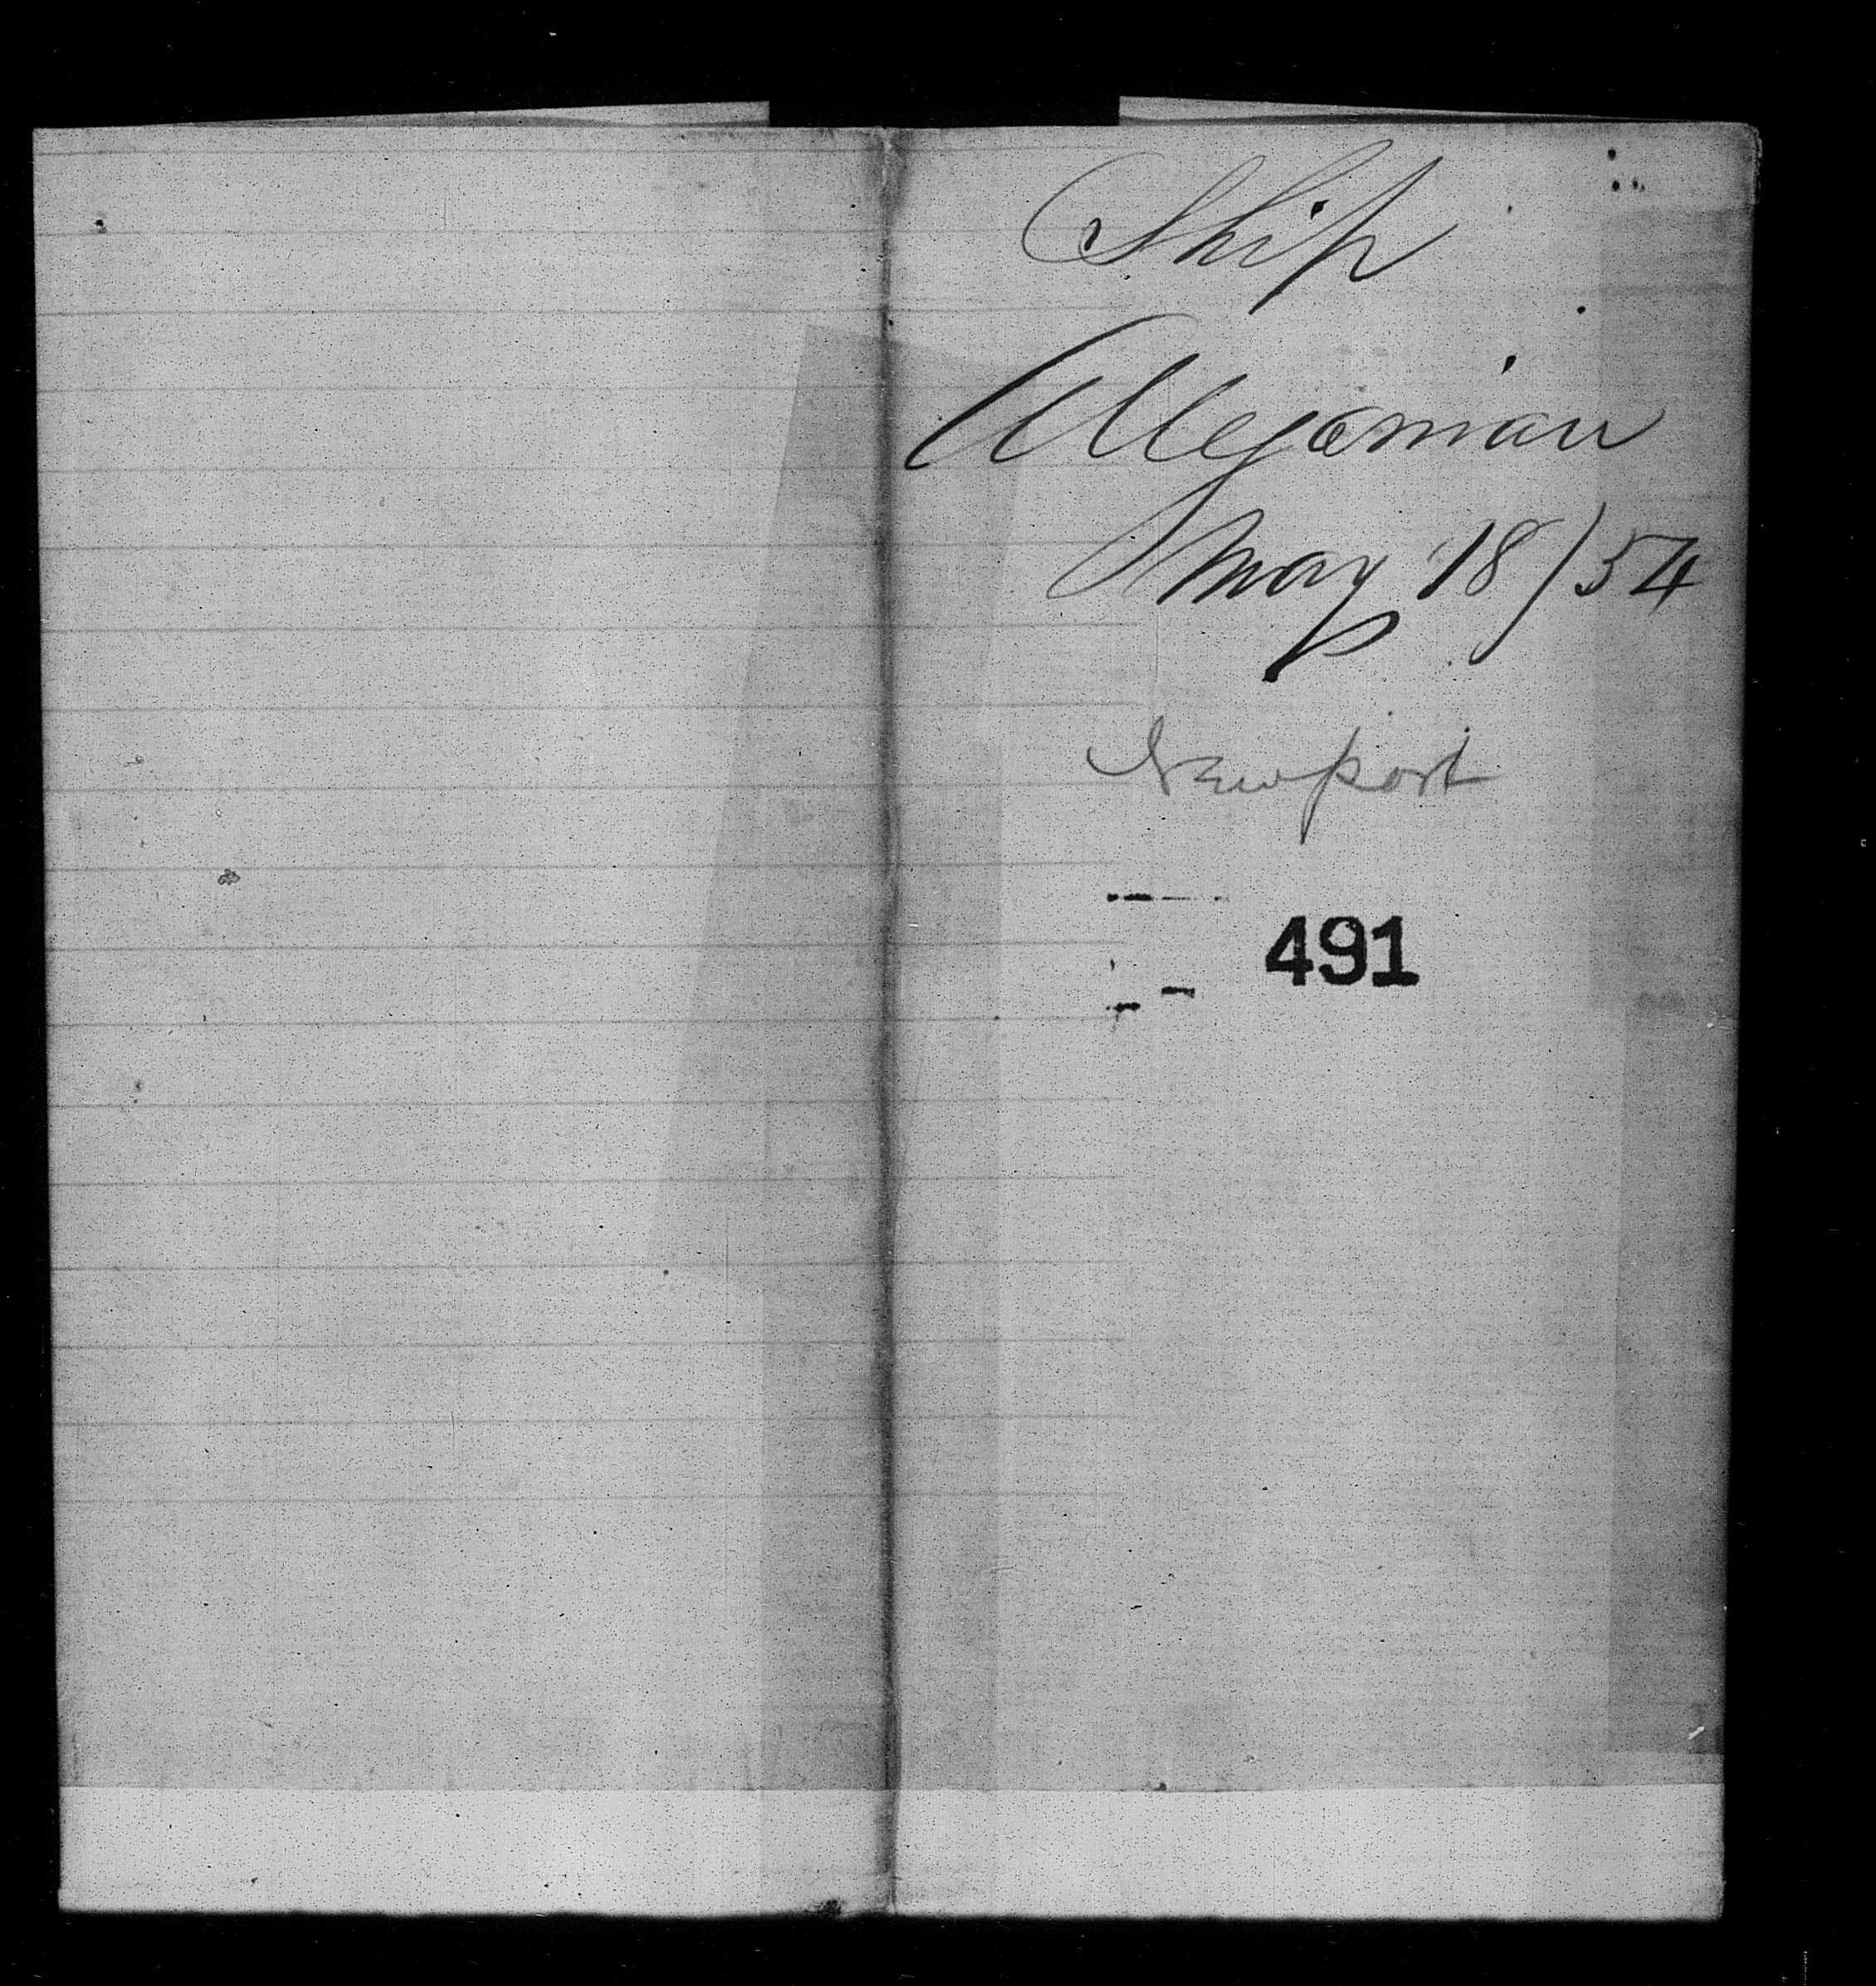 Ship
Alleganian
May 18/54
Newport
491